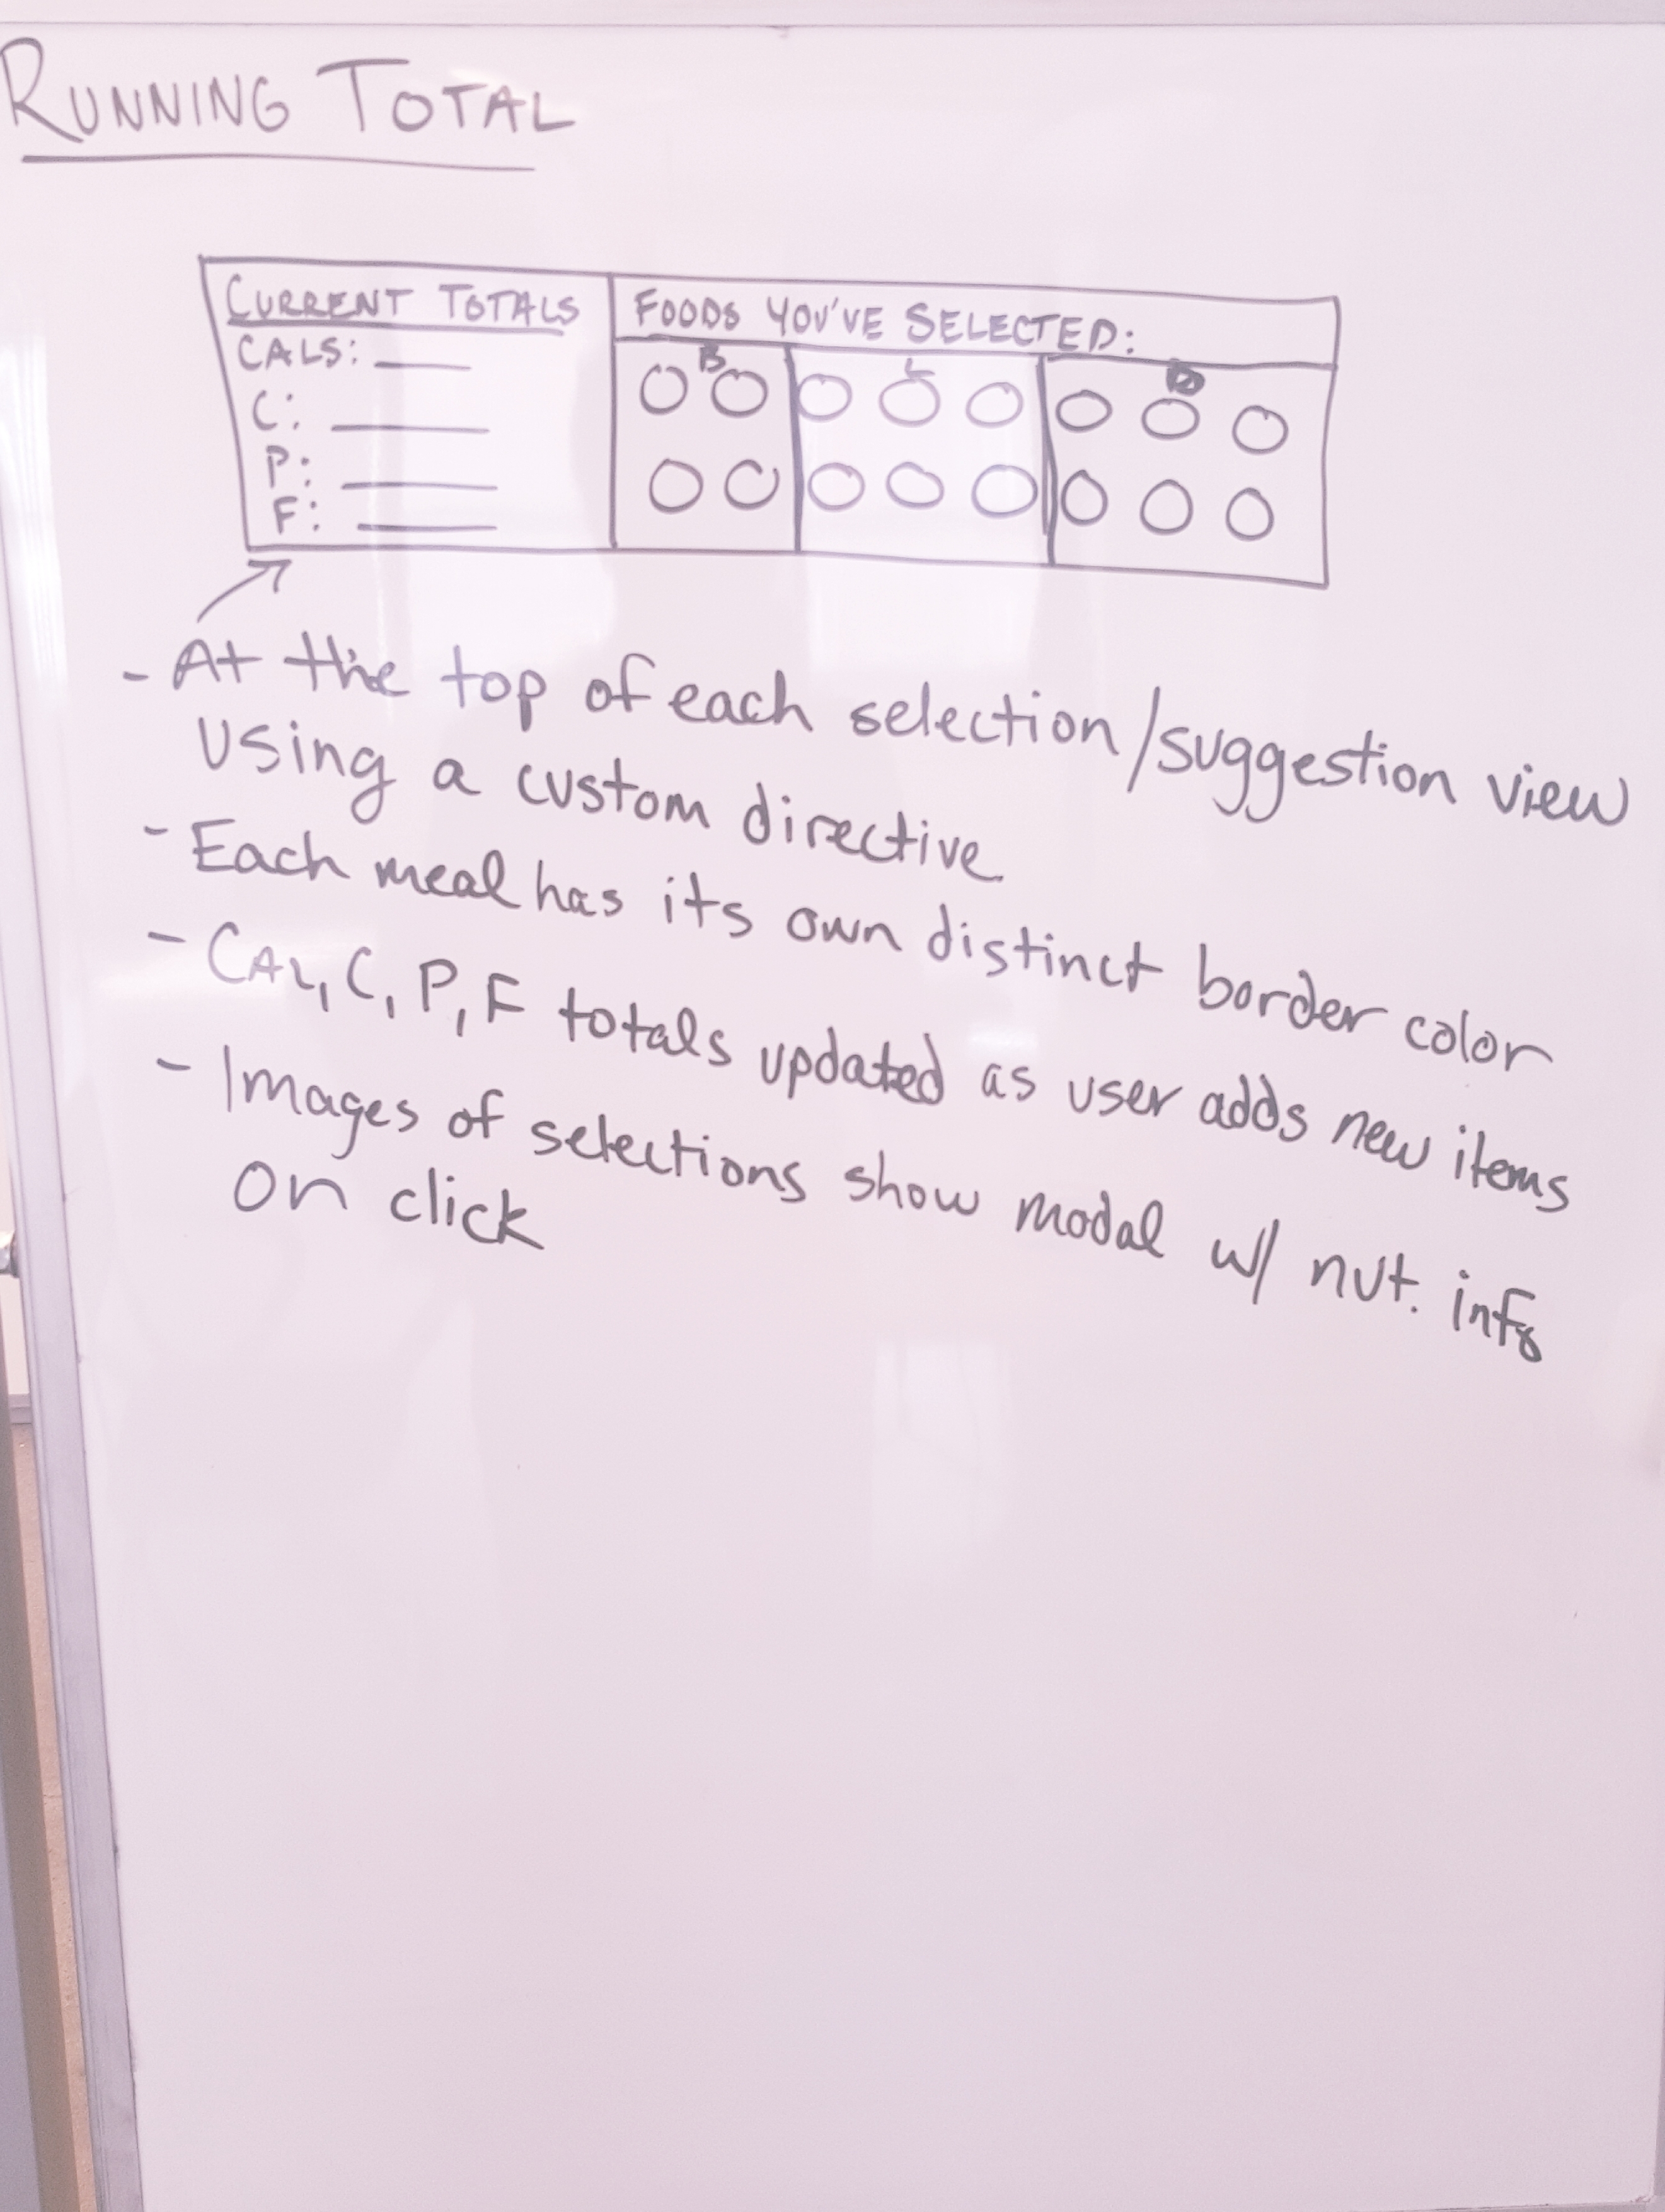 RUNNING TOTAL
CURRENT TOTALS
CALS:
C:
P:
F:
FOODS YOU'VE SELECTED:
B
L
D
- At the top of each selection/suggestion view
Using a custom directive
- Each meal has its own distinct border color
- CAL, C, P, F totals updated as user adds new items
- Images of selections show modal w/ nut. info
on click